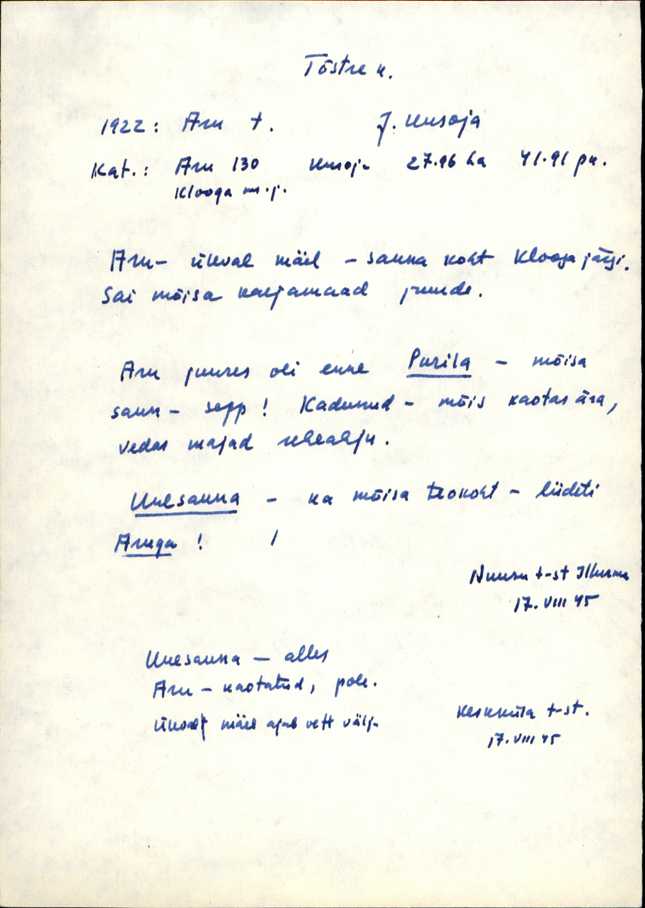 Tõstre k.
1922: Aru t. J. Uusoja
Kat.: Aru 130 Uusoja 27.96 ha 41.91 pu.
Klooga m.j.
Aru - ülival mäel - sauna koht Klooga järgi.
Sai mõisa karjamaad juurde.
Aru juures oli enne Purila - mõisa
saun - sepp! Kadunud - mõis kaotas ära,
vedas majad rehealju.
Uuesauna - ka mõisa teokoht - liideti
Aruga!
t-st
17.VIII 45
Uuesauna - alles
Aru - kaotatud, pole.
mäel ajab vett välja
Keskküla t-st.
17.VIII 45